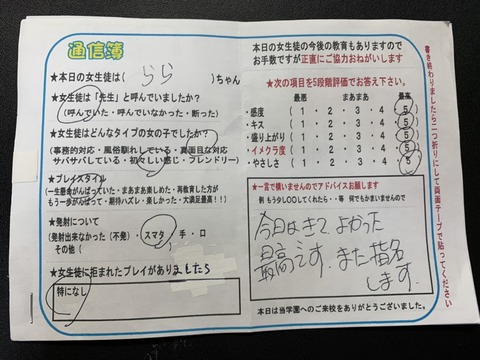 通信簿
★本日の女生徒は( らら )ちゃん
★女生徒は「先生」と呼んでいましたか?
(呼んでいた・呼んでいなかった・断った)
★女生徒はどんなタイプの女の子でしたか?
(事務的対応・風俗馴れしている・真面目な対応
サバサバしている・初々しい感じ・フレンドリー)
★プレイスタイル
(一生懸命がんばっていた・まあまあ楽しめた・再教育した方が
もう一歩がんばって・期待ハズレ・楽しかった・大満足最高!!)
★発射について
(発射出来なかった(不発)・スマタ・手・口
その他( )
★女生徒に拒まれたプレイがありましたら
特になし
本日の女生徒の今後の教育もありますので
お手数ですが正直にご協力おねがいします
★次の項目を5段階評価でお答え下さい。
最悪 まあまあ 最高
・感度 1・2・3・4・5
・キス 1・2・3・4・5
・盛り上がり 1・2・3・4・5
・イメクラ度 1・2・3・4・5
・やさしさ 1・2・3・4・5
★一言で構いませんのでアドバイスお願します
例 もう少し〇〇してくれたら・・等 何でもかまいませんので
今日はきて、よかった
最高です。また指名
します。
本日は当学園へのご来校をありがとうございました。
書き終わりましたら二つ折りにして両面テープで貼ってください